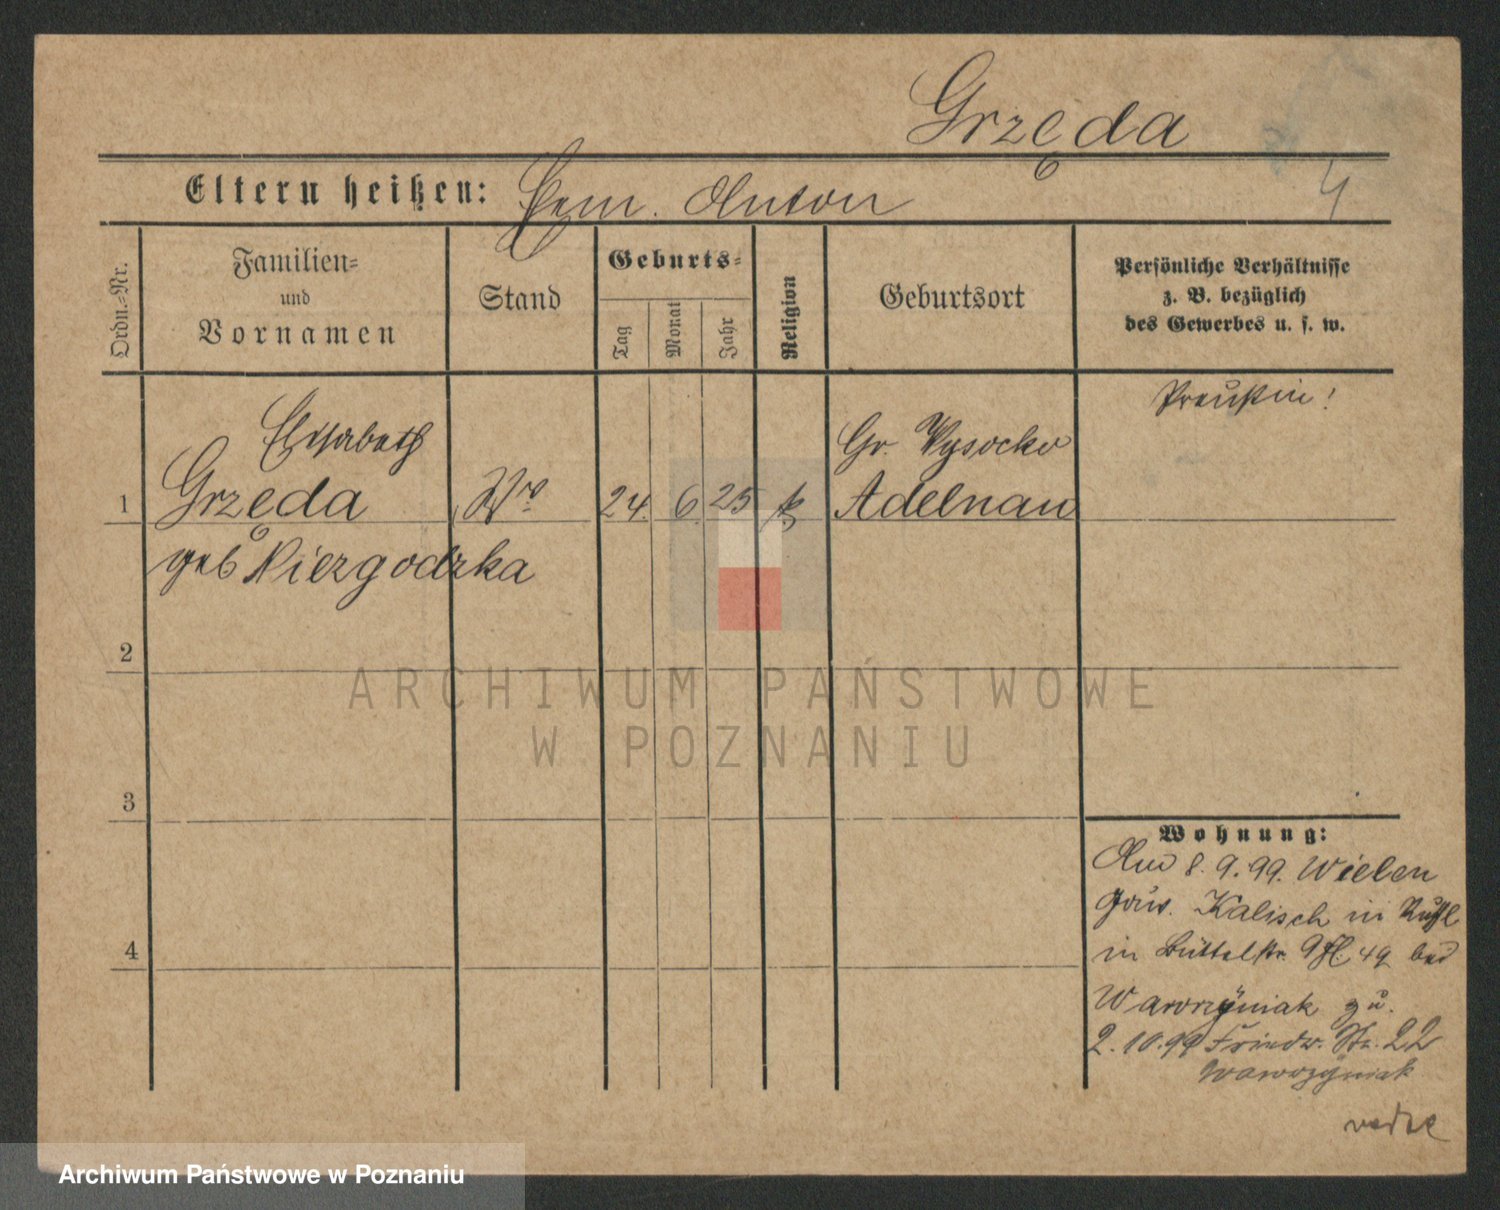 Grzęda
Eltern heißen: Anton
4
Ordn.-Nr.
Familien-
und
Vornamen
Stand
Geburts-
Tag
Monat
Jahr
Religion
Geburtsort
Persönliche Verhältnisse
z. B. bezüglich
des Gewerbes u. s. w.
Preußin!
Elisabeth
Gr. Wysocko
1 Grzęda Ww 24. 6. 25 k Adelnau
geb Niezgodzka
2
ARCHIWUM PAŃSTWOWE
W POZNANIU
3
Wohnung:
8. 9. 99. Wielen
Gouv. Kalisch in Rußl
in Büttelstr. 49 bei
Wawrzyniak zu.
2. 10. 99 Friedr. Str. 22
Wawrzyniak
4
Archiwum Państwowe w Poznaniu